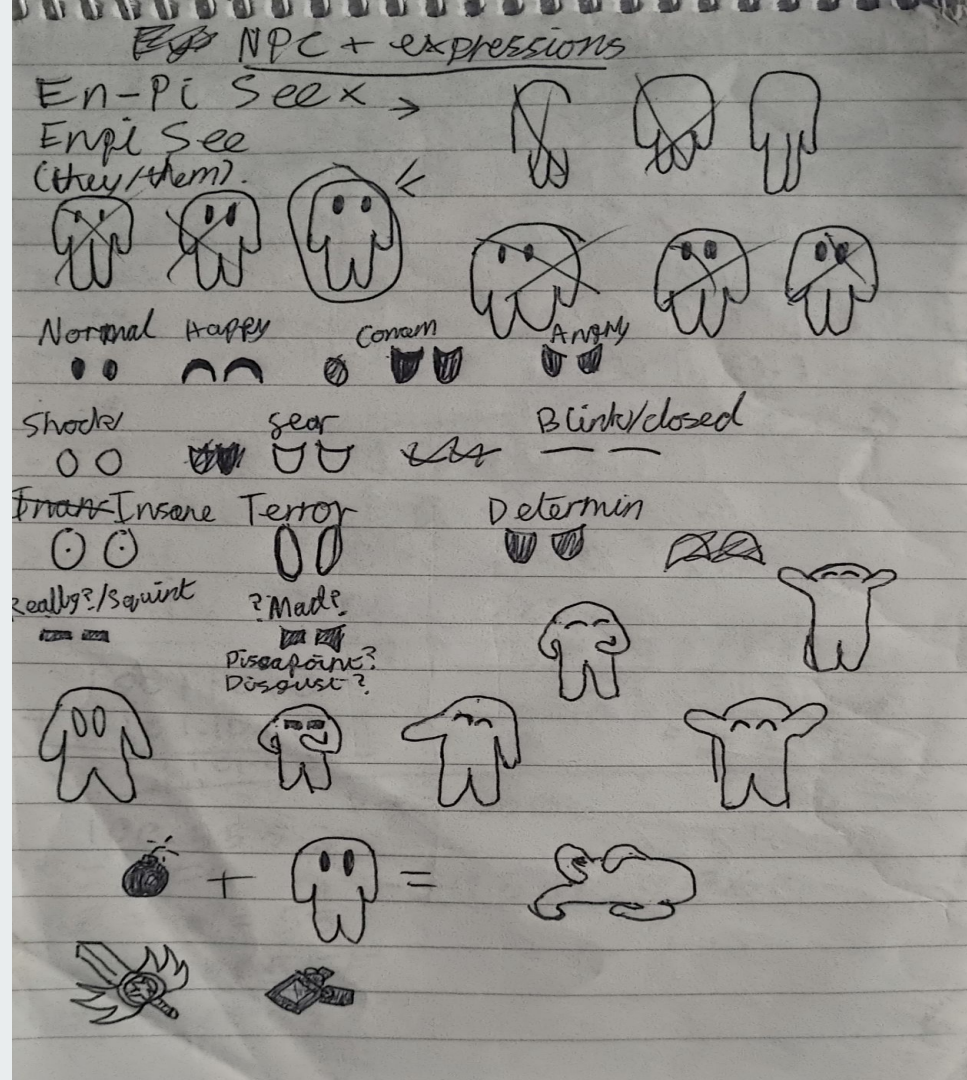 NPC + expressions
En-Pi See x →
Enpi See
(they/them).
Normal Happy Concern Angry
Shock fear Blink/closed
Insane Terror Determin
Really?/Squint ?Mad?
Disapoint?
Disgust?
+ =